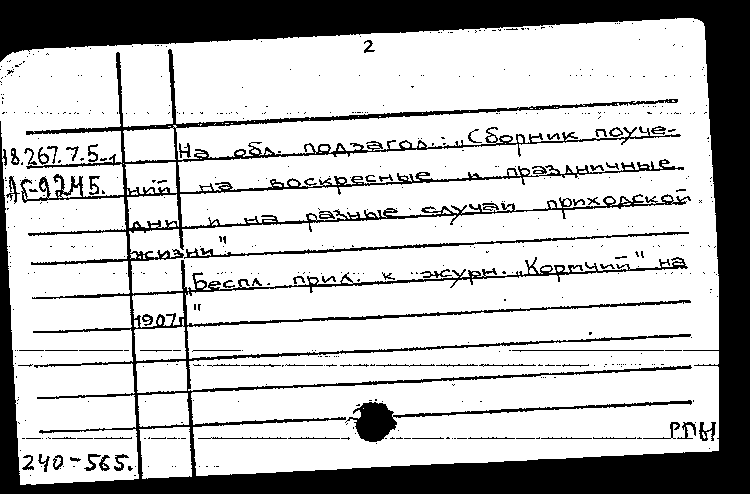 2
18.267.7.5-1 На обл. подзагол.: „Сборник поуче-
ний на воскресные и праздничные
дни и на разные случаи приходской
жизни".
„Беспл. прил. к журн. „Кормчий" на
1907г."
240-565.